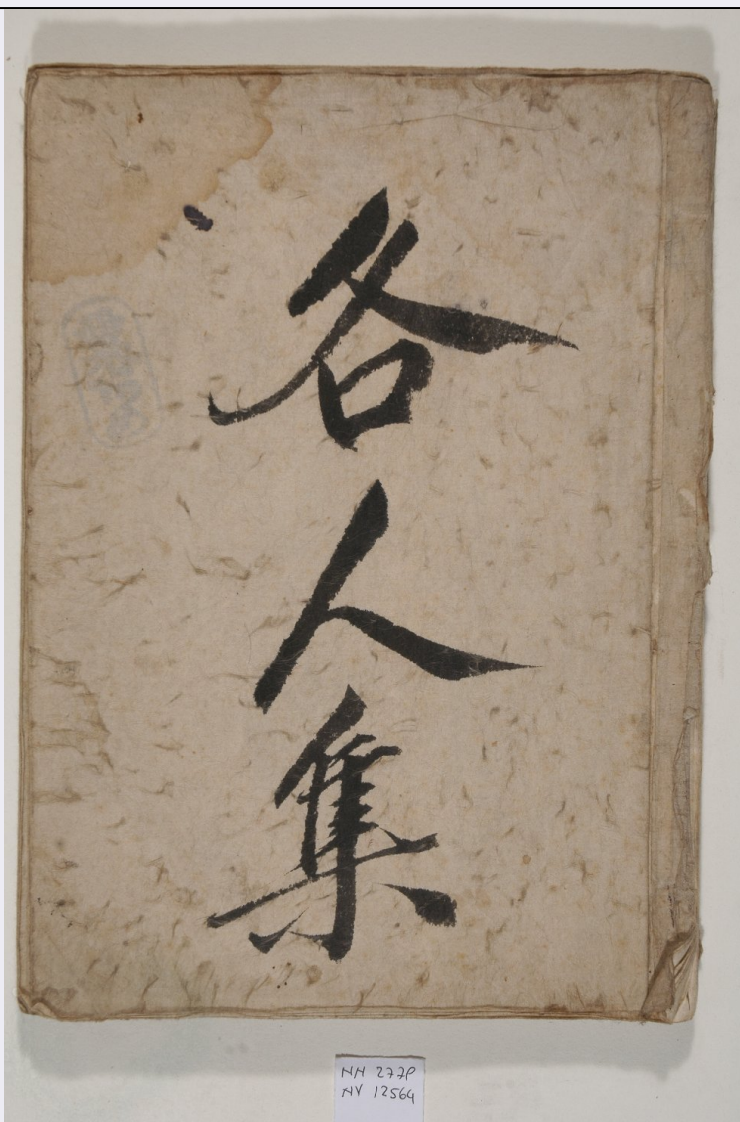 各人集
NN 277P
NV 12564